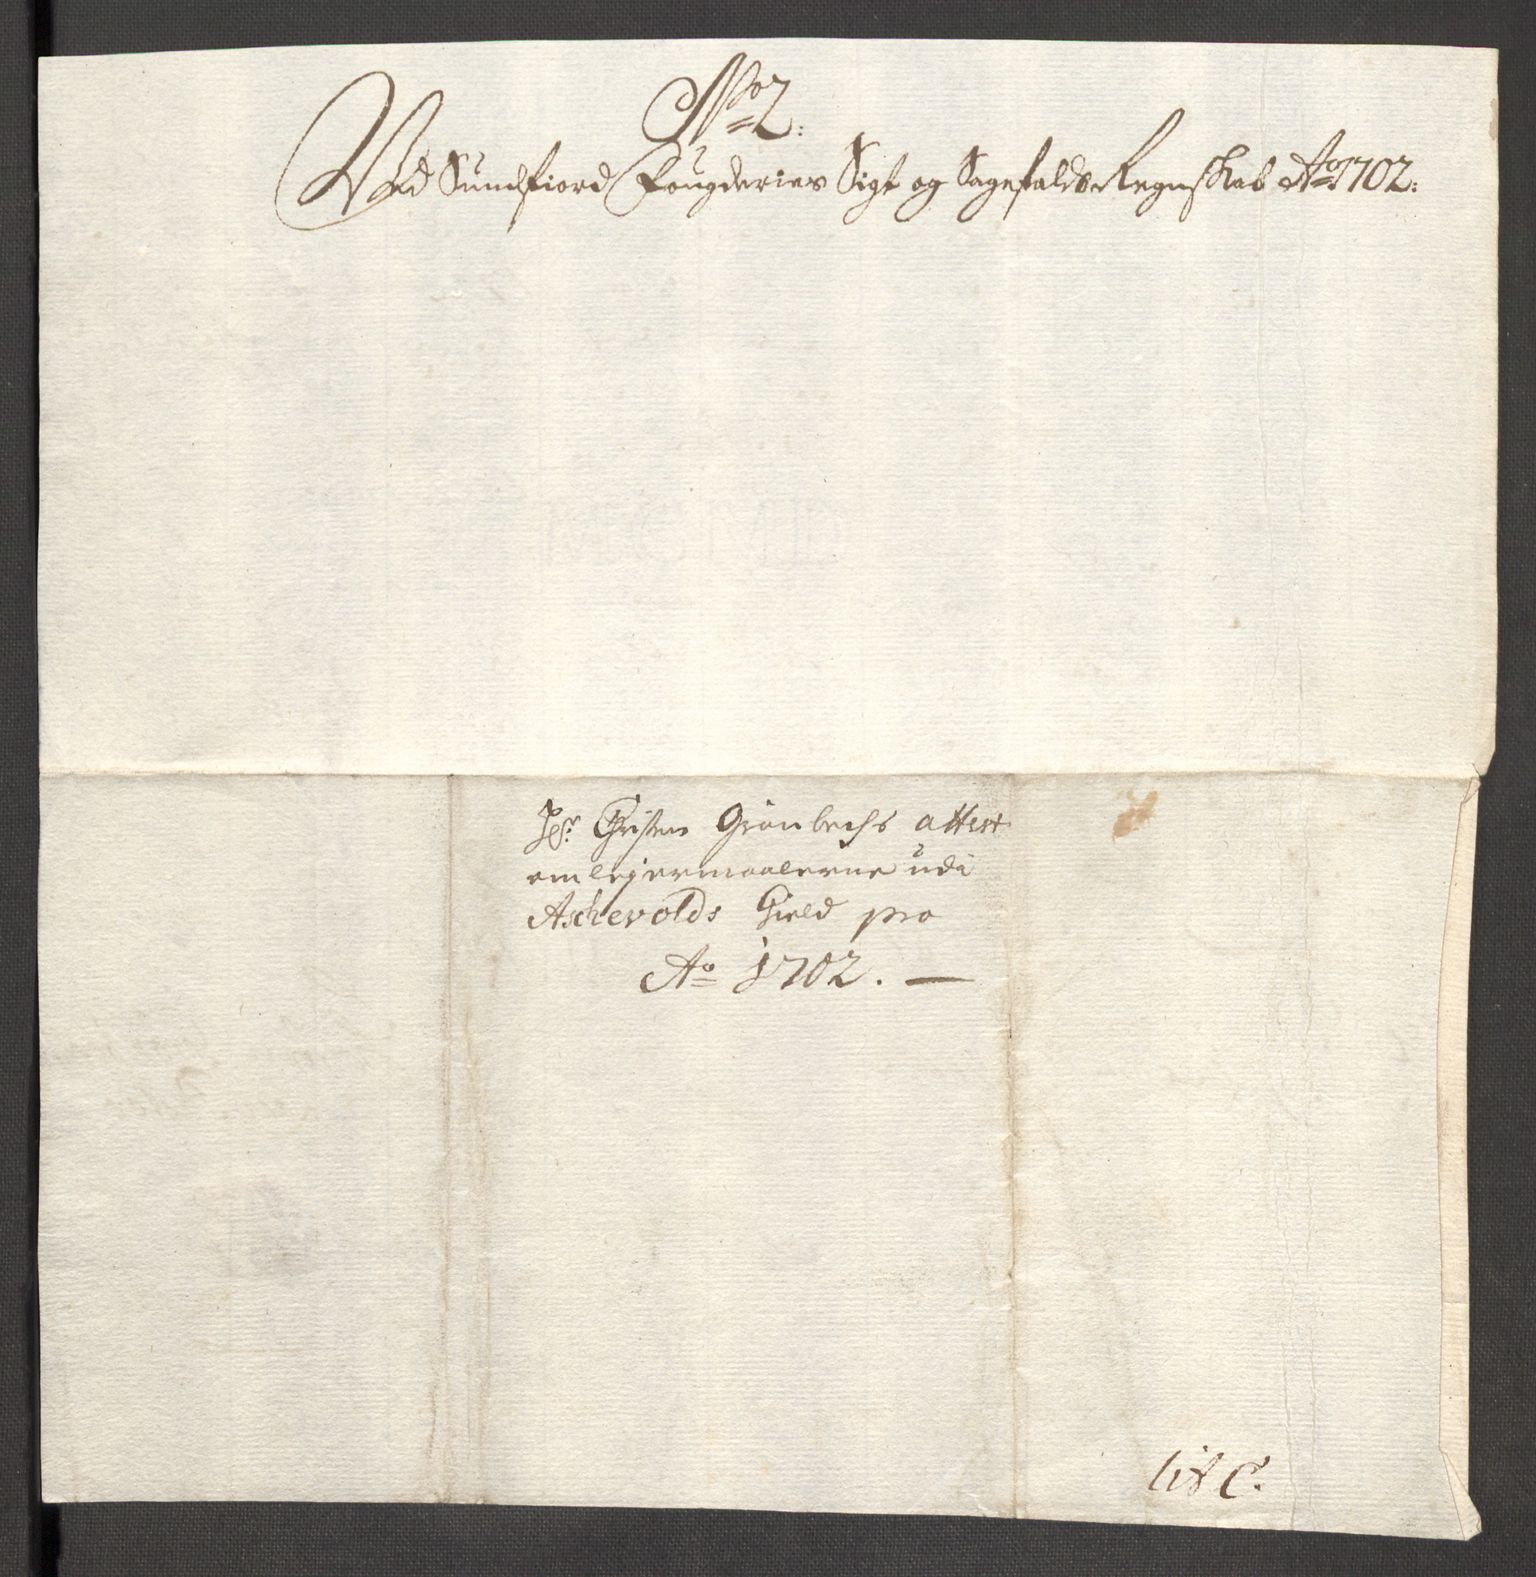 No 2:
Ved Sundfiord Fougderies Sigt og Sagefalds Regnskab Ao 1702:
Hr Christen Grönbechs attest
om lejermaalerne udi
Aschevolds Gield pro
Ao 1702. —
lit C.